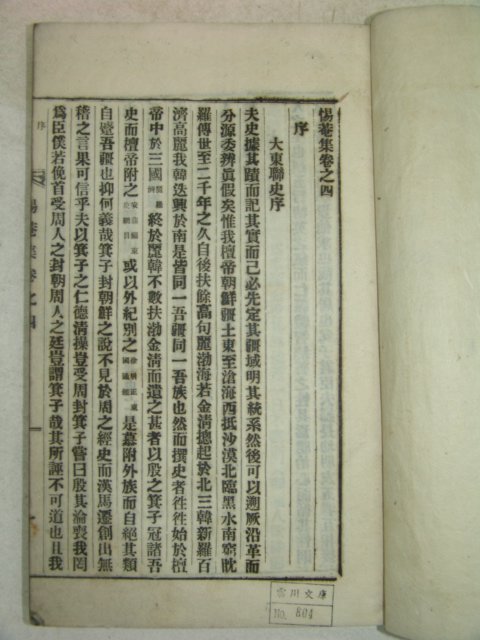 惕菴集卷之四
序
大東聯史序
夫史據其蹟而記其實而己必先定其疆域明其統系然後可以遡厥沿革而
分源委辨眞假矣惟我檀帝朝鮮疆土東至滄海西抵沙漠北臨黑水南窮耽
羅傳世至二千年之久自後扶餘高句麗渤海若金清摠起於北三韓新羅百
濟高麗我韓迭興於南是皆同一吾疆同一吾族也然而撰史者徃徃始於檀
帝中於三國終於麗韓不數扶渤金清而遺之甚者以殷之箕子冠諸吾
史而檀帝附之或以外紀別之是慕附外族而自絕其類
自蹙吾疆也抑何義哉箕子封朝鮮之說不見於周之經史而漢馬遷創出無
稽之言果可信乎夫以箕子之仁德清操豈受周封箕子嘗曰殷其淪喪我罔
爲臣僕若俛首受周人之封朝周人之廷豈謂箕子哉其所誣不可道也且我
序
惕菴集卷之四
一
雲川文庫
No. 804